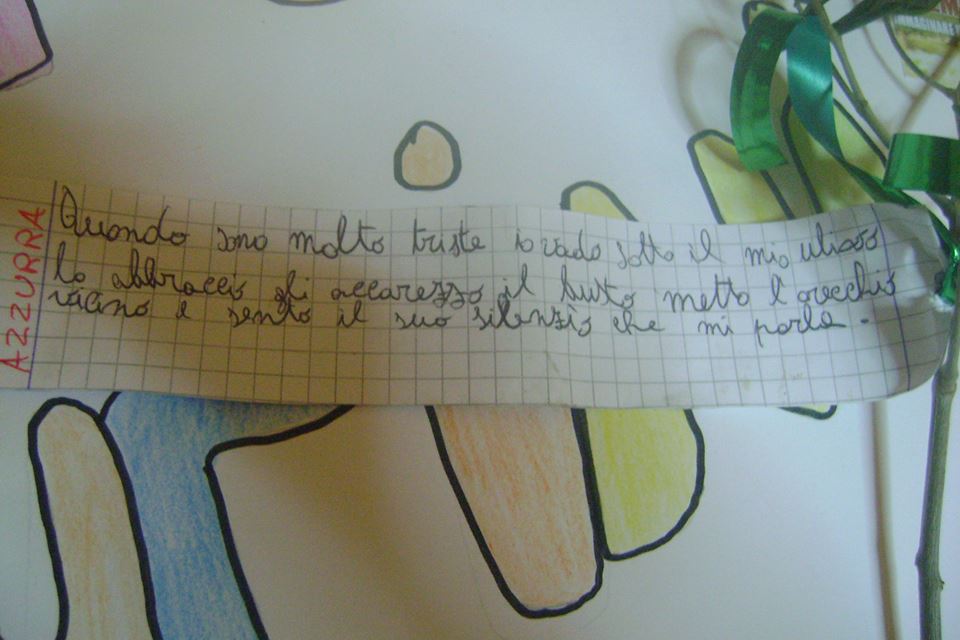 AZZURRA
Quando sono molto triste io vado sotto il mio ulivo
lo abbraccio gli accarezzo il busto metto l'orecchio
vicino e sento il suo silenzio che mi parla.
IMMAGINARE